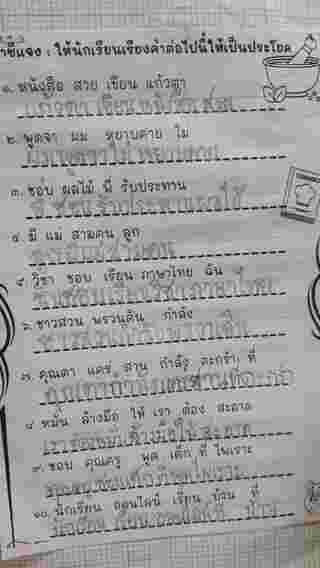 าชี้แจง : ให้นักเรียนเรียงคำต่อไปนี้ให้เป็นประโยค
๑. หนังสือ สวย เขียน แก้วตา
แก้วตา เขียน หนังสือ สวย
๒. พูดจา ผม หยาบคาย ไม่
ผมพูดจาไม่หยาบคาย
๓. ชอบ ผลไม้ พี่ รับประทาน
พี่ ชอบ รับประทานผลไม้
๔. มี แม่ สามคน ลูก
๕. วิชา ชอบ เรียน ภาษาไทย ฉัน
ฉันชอบเรียนวิชาภาษาไทย
๖. ชาวสวน พรวนดิน กำลัง
ชาวสวนกำลังพรวนดิน
๗. คุณตา แคร่ สาน กำลัง ตะกร้า ที่
คุณตากำลัง
๘. หมั่น ล้างมือ ให้ เรา ต้อง สะอาด
เราต้องหมั่นล้างมือให้สะอาด
๙. ชอบ คุณครู พูด เด็ก ที่ ไพเราะ
๑๐. นักเรียน ออนไลน์ เรียน บ้าน ที่
นักเรียน เรียน ออนไลน์ที่ บ้าน